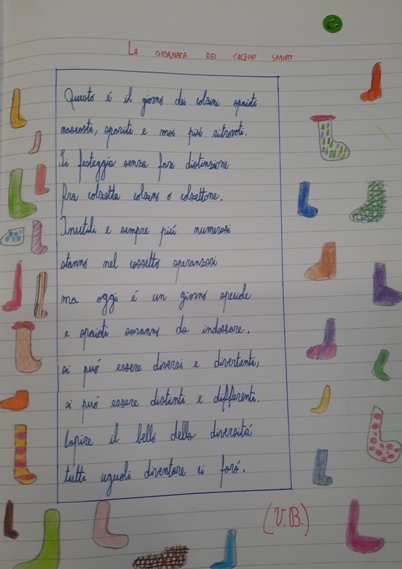 LA GIORNATA DEI CALZINI SPAIATI
Questo é il giorno dei calzini spaiati
nascosti, spariti e mai piú ritrovati.
Si festeggia senza fare distinzione
fra calzetta calzino o calzettone.
Inutili e sempre piú numerosi
stanno nel cassetto speranzosi
ma oggi é un giorno speciale
e spaiati saranno da indossare.
si puó essere diversi e divertenti,
si puó essere distinti e differenti.
Capire il bello della diversitá
tutti uguali diventare ci fará.
(V.B.)